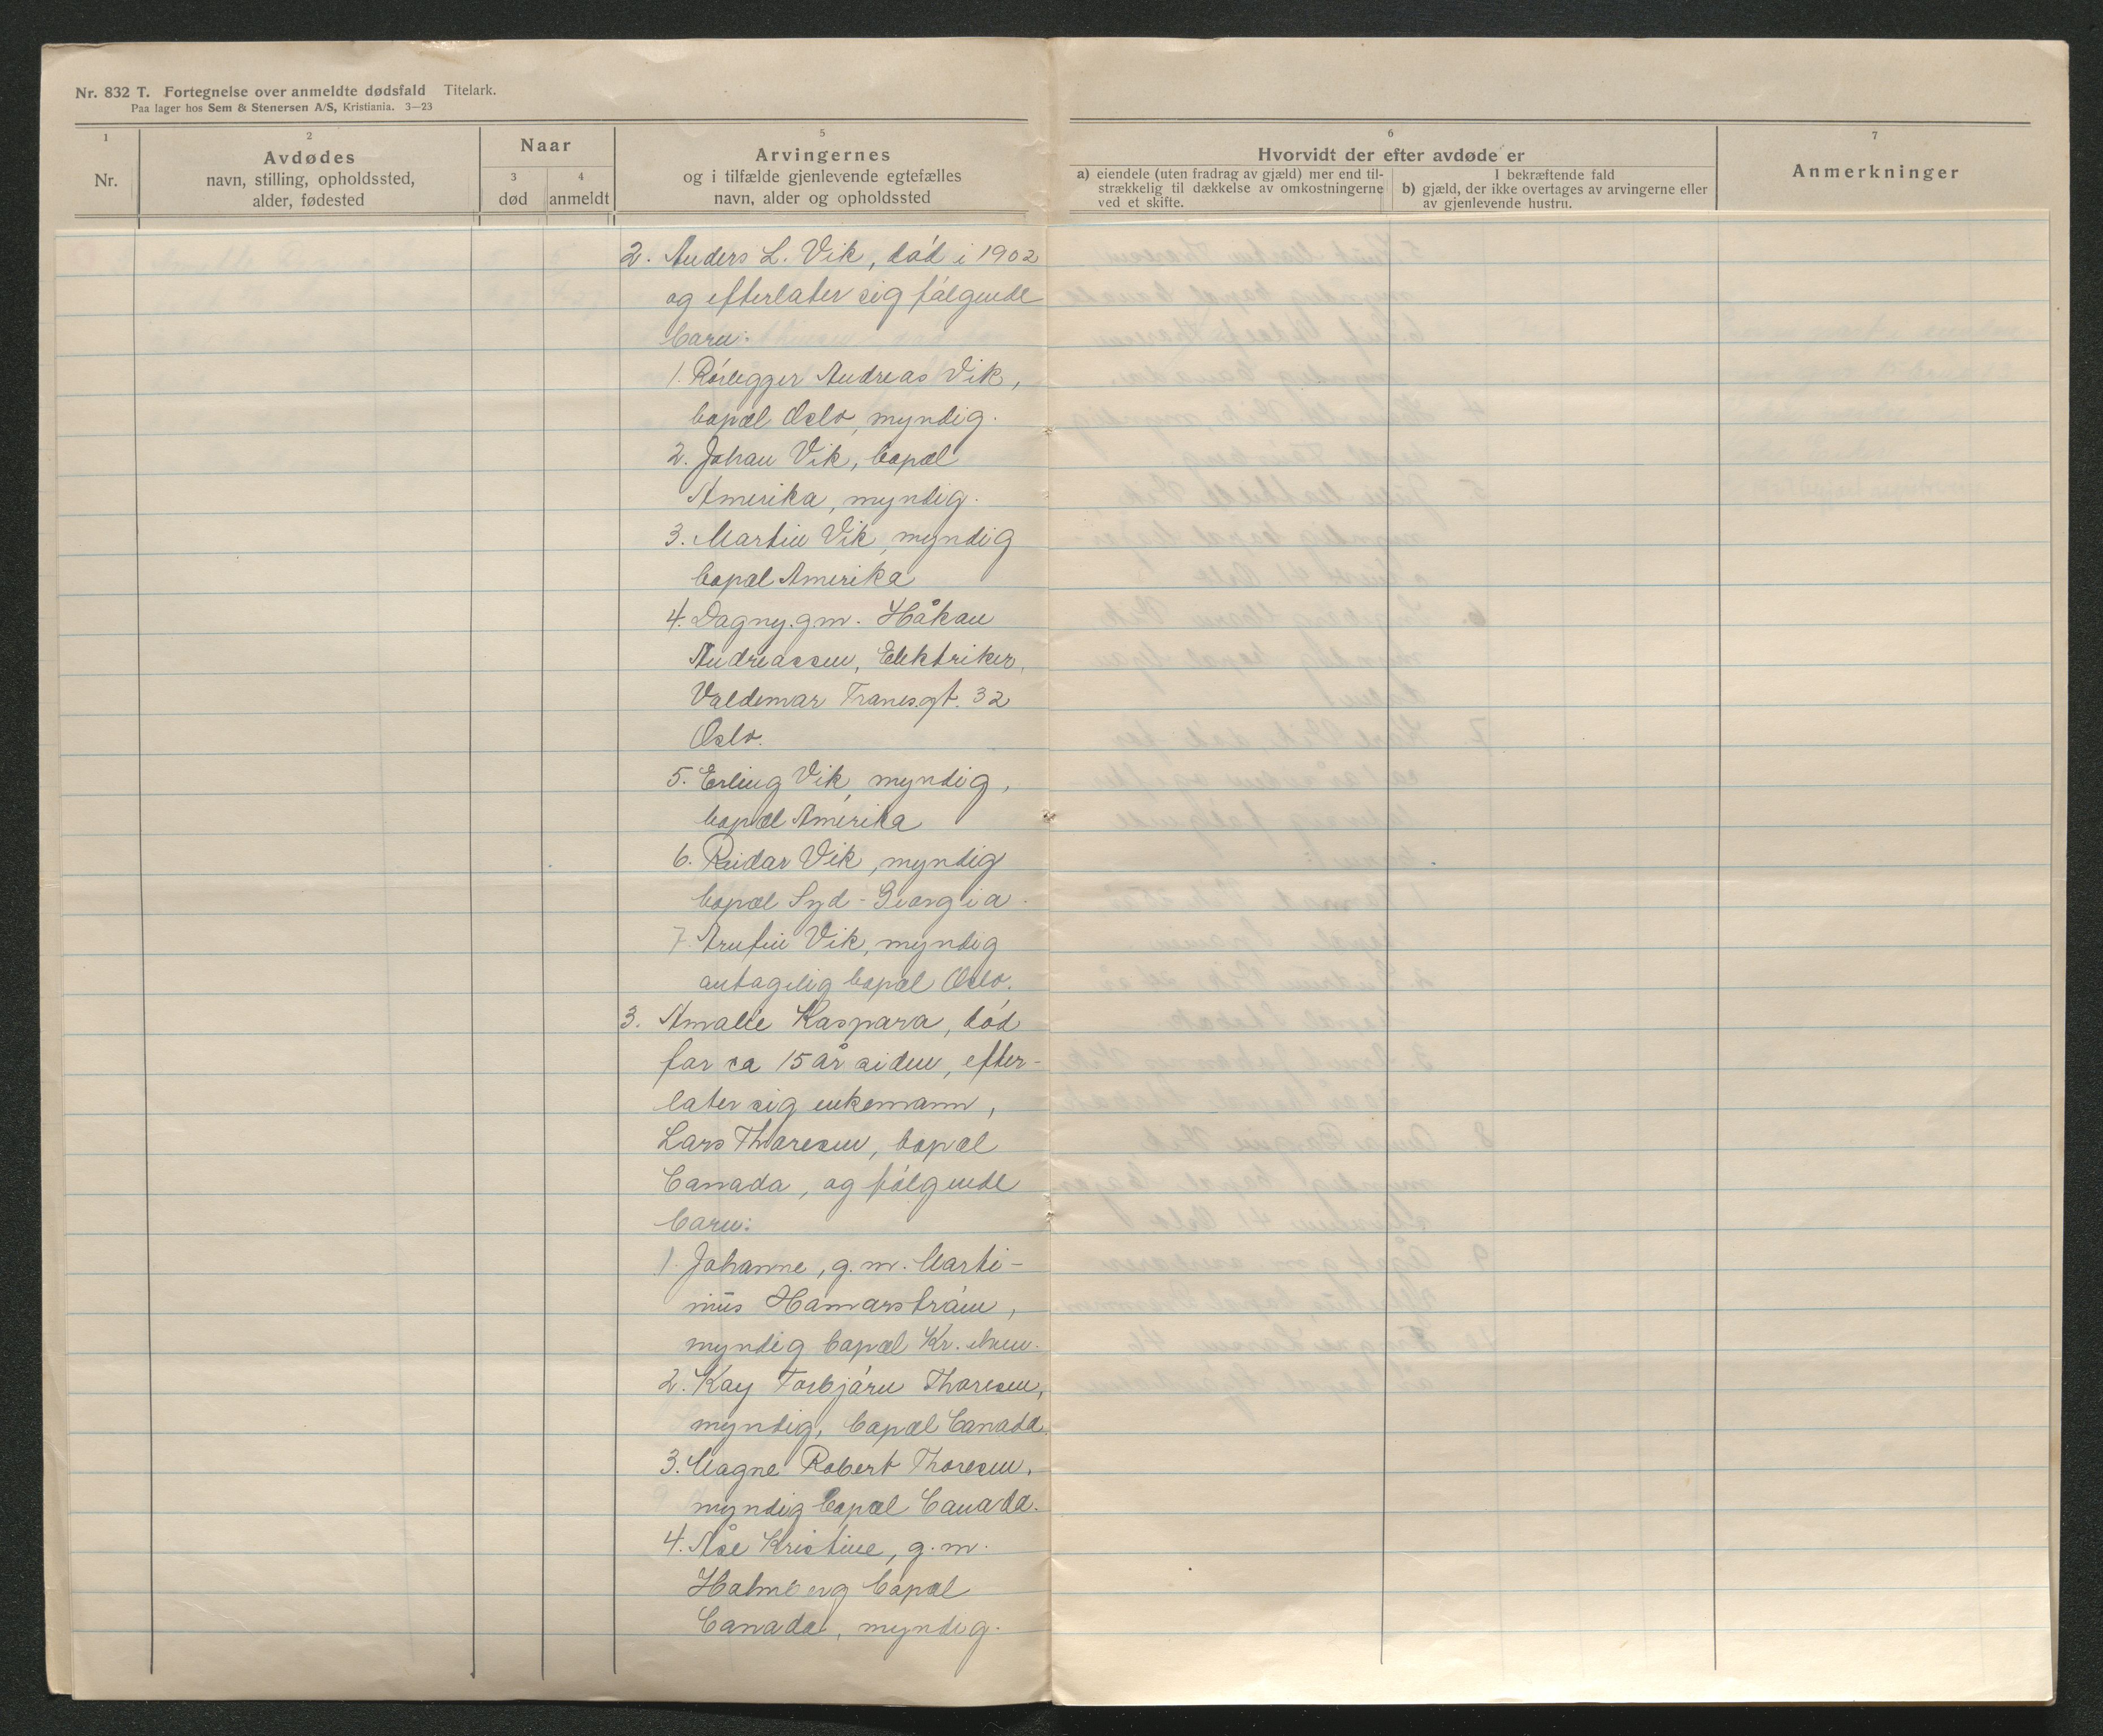 Nr. 832 T. Fortegnelse over anmeldte dødsfald Titelark.
Paa lager hos Sem & Stenersen A/S, Kristiania. 3—23
1
Nr.
2
Avdødes
navn, stilling, opholdssted,
alder, fødested
Naar
3
død
4
anmeldt
5
Arvingernes
og i tilfælde gjenlevende egtefælles
navn, alder og opholdssted
6
Hvorvidt der efter avdøde er
a) eiendele (uten fradrag av gjæld) mer end til-
strækkelig til dækkelse av omkostningerne
ved et skifte.
I bekræftende fald
b) gjæld, der ikke overtages av arvingerne eller
av gjenlevende hustru.
7
Anmerkninger
2. Anders L. Vik, död i 1902
og efterlater sig fölgende
barn:
1. Rörlegger Andreas Vik,
bopæl Oslo, myndig.
2. Johan Vik, bopæl
Amerika, myndig.
3. Martin Vik, myndig
bopæl Amerika
4. Dagny. g.m. Håkan
Andreassen, Elektriker,
Valdemar Tranes.gt. 32
Oslo.
5. Erling Vik, myndig,
bopæl Amerika
6. Reidar Vik, myndig
bopæl Syd-Georgia.
7. Arnfin Vik, myndig
antagelig bopæl Oslo.
3. Amalie Kaspara, död
for ca 15 år siden, efter-
later sig enkemann,
Lars Thoresen, bopæl
Canada, og fölgende
barn:
1. Johanne, g.m. Marti-
nus Hamarström,
myndig bopæl Kr.
2. Kay Torbjörn Thoresen,
myndig, bopæl Canada.
3. Magne Robert Thoresen,
myndig bopæl Canada.
4. Åse Kristine, g.m.
Holmberg bopæl
Canada, myndig.